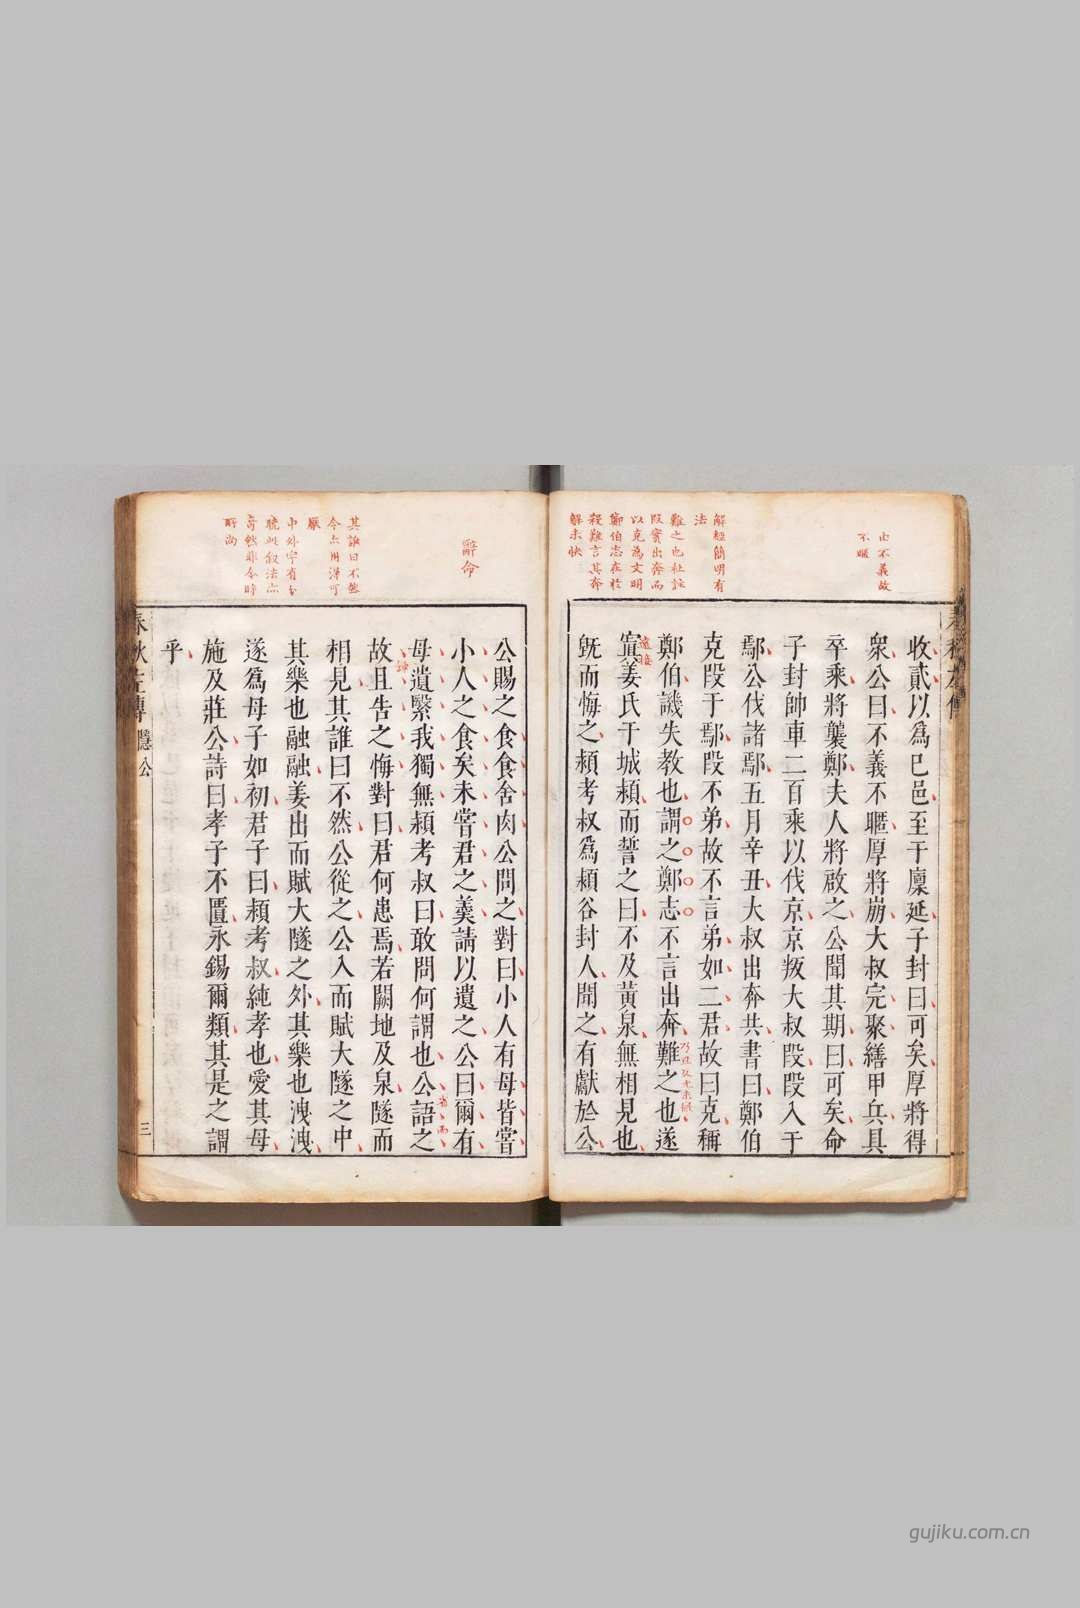 由不義故
不暱
解經簡明有
法
難之也杜註
段實出奔而
以克為文明
鄭伯志在於
殺難言其奔
解未快
收貳以爲己邑至于廩延子封曰可矣厚將得
衆公曰不義不暱厚將崩大叔完聚繕甲兵具
卒乘將襲鄭夫人將啟之公聞其期曰可矣命
子封帥車二百乘以伐京京叛大叔段段入于
鄢公伐諸鄢五月辛丑大叔出奔共書曰鄭伯
克段于鄢段不弟故不言弟如二君故曰克稱
鄭伯譏失教也謂之鄭志不言出奔難之也遂
寘姜氏于城潁而誓之曰不及黃泉無相見也
既而悔之潁考叔爲潁谷封人聞之有獻於公
辭命
其誰曰不然
今亦用渾可
厭
中外字有分
曉此叙法亦
奇然非今時
所尚
公賜之食食舍肉公問之對曰小人有母皆嘗
小人之食矣未嘗君之羹請以遺之公曰爾有
母遺繄我獨無潁考叔曰敢問何謂也公語之
故且告之悔對曰君何患焉若闕地及泉隧而
相見其誰曰不然公從之公入而賦大隧之中
其樂也融融姜出而賦大隧之外其樂也洩洩
遂爲母子如初君子曰潁考叔純孝也愛其母
施及莊公詩曰孝子不匱永錫爾類其是之謂
乎
春秋左傳 隱公
三
gujiku.com.cn